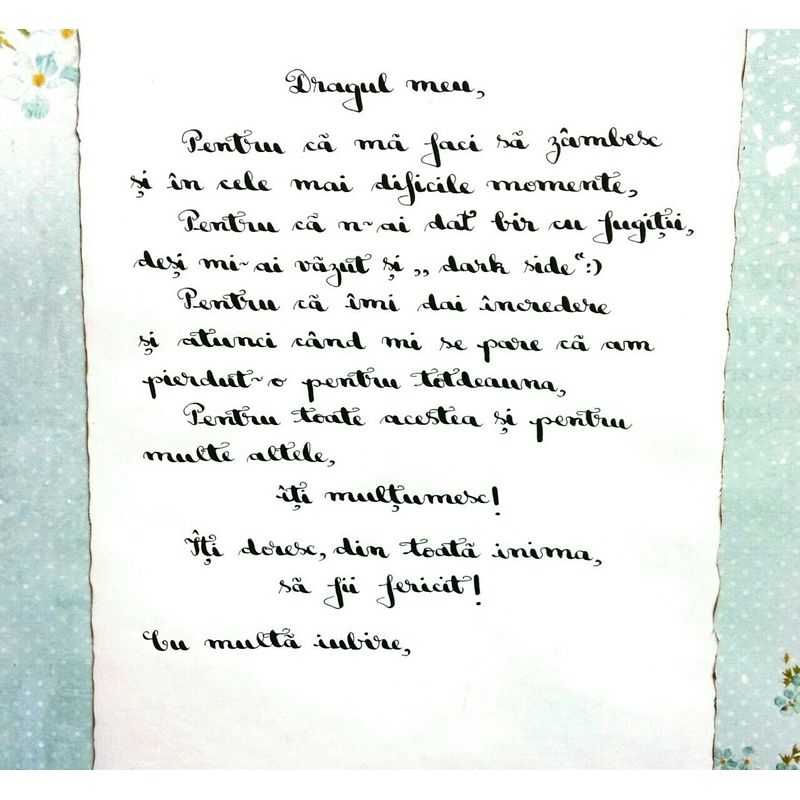 Dragul meu,
Pentru că mă faci să zâmbesc
și în cele mai dificile momente,
Pentru că n-ai dat bir cu fugiții,
deși mi-ai văzut și „dark side“:)
Pentru că îmi dai încredere
și atunci când mi se pare că am
pierdut-o pentru totdeauna,
Pentru toate acestea și pentru
multe altele,
îți mulțumesc!
Îți doresc, din toată inima,
să fii fericit!
Cu multă iubire,